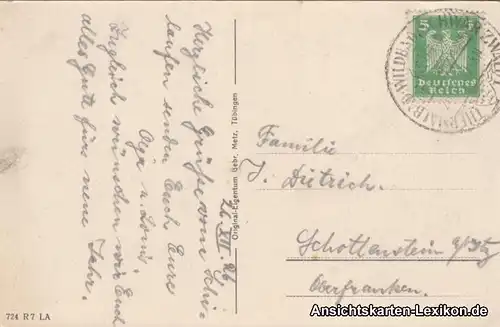 Herzliche Grüße vom Schi-
laufen senden Euch Eure
Olga u. Louis.
Zugleich wünschen wir Euch
alles Gute fürs neue Jahr.
26. XII. 26
724 R 7 LA
Original-Eigentum Gebr. Metz, Tübingen
5 5
Deutsches
Reich
WILDBAD
THERMALBAD
Familie
J. Dietrich.
Schottenstein
Oberfranken.
Ansichtskarten-Lexikon.de